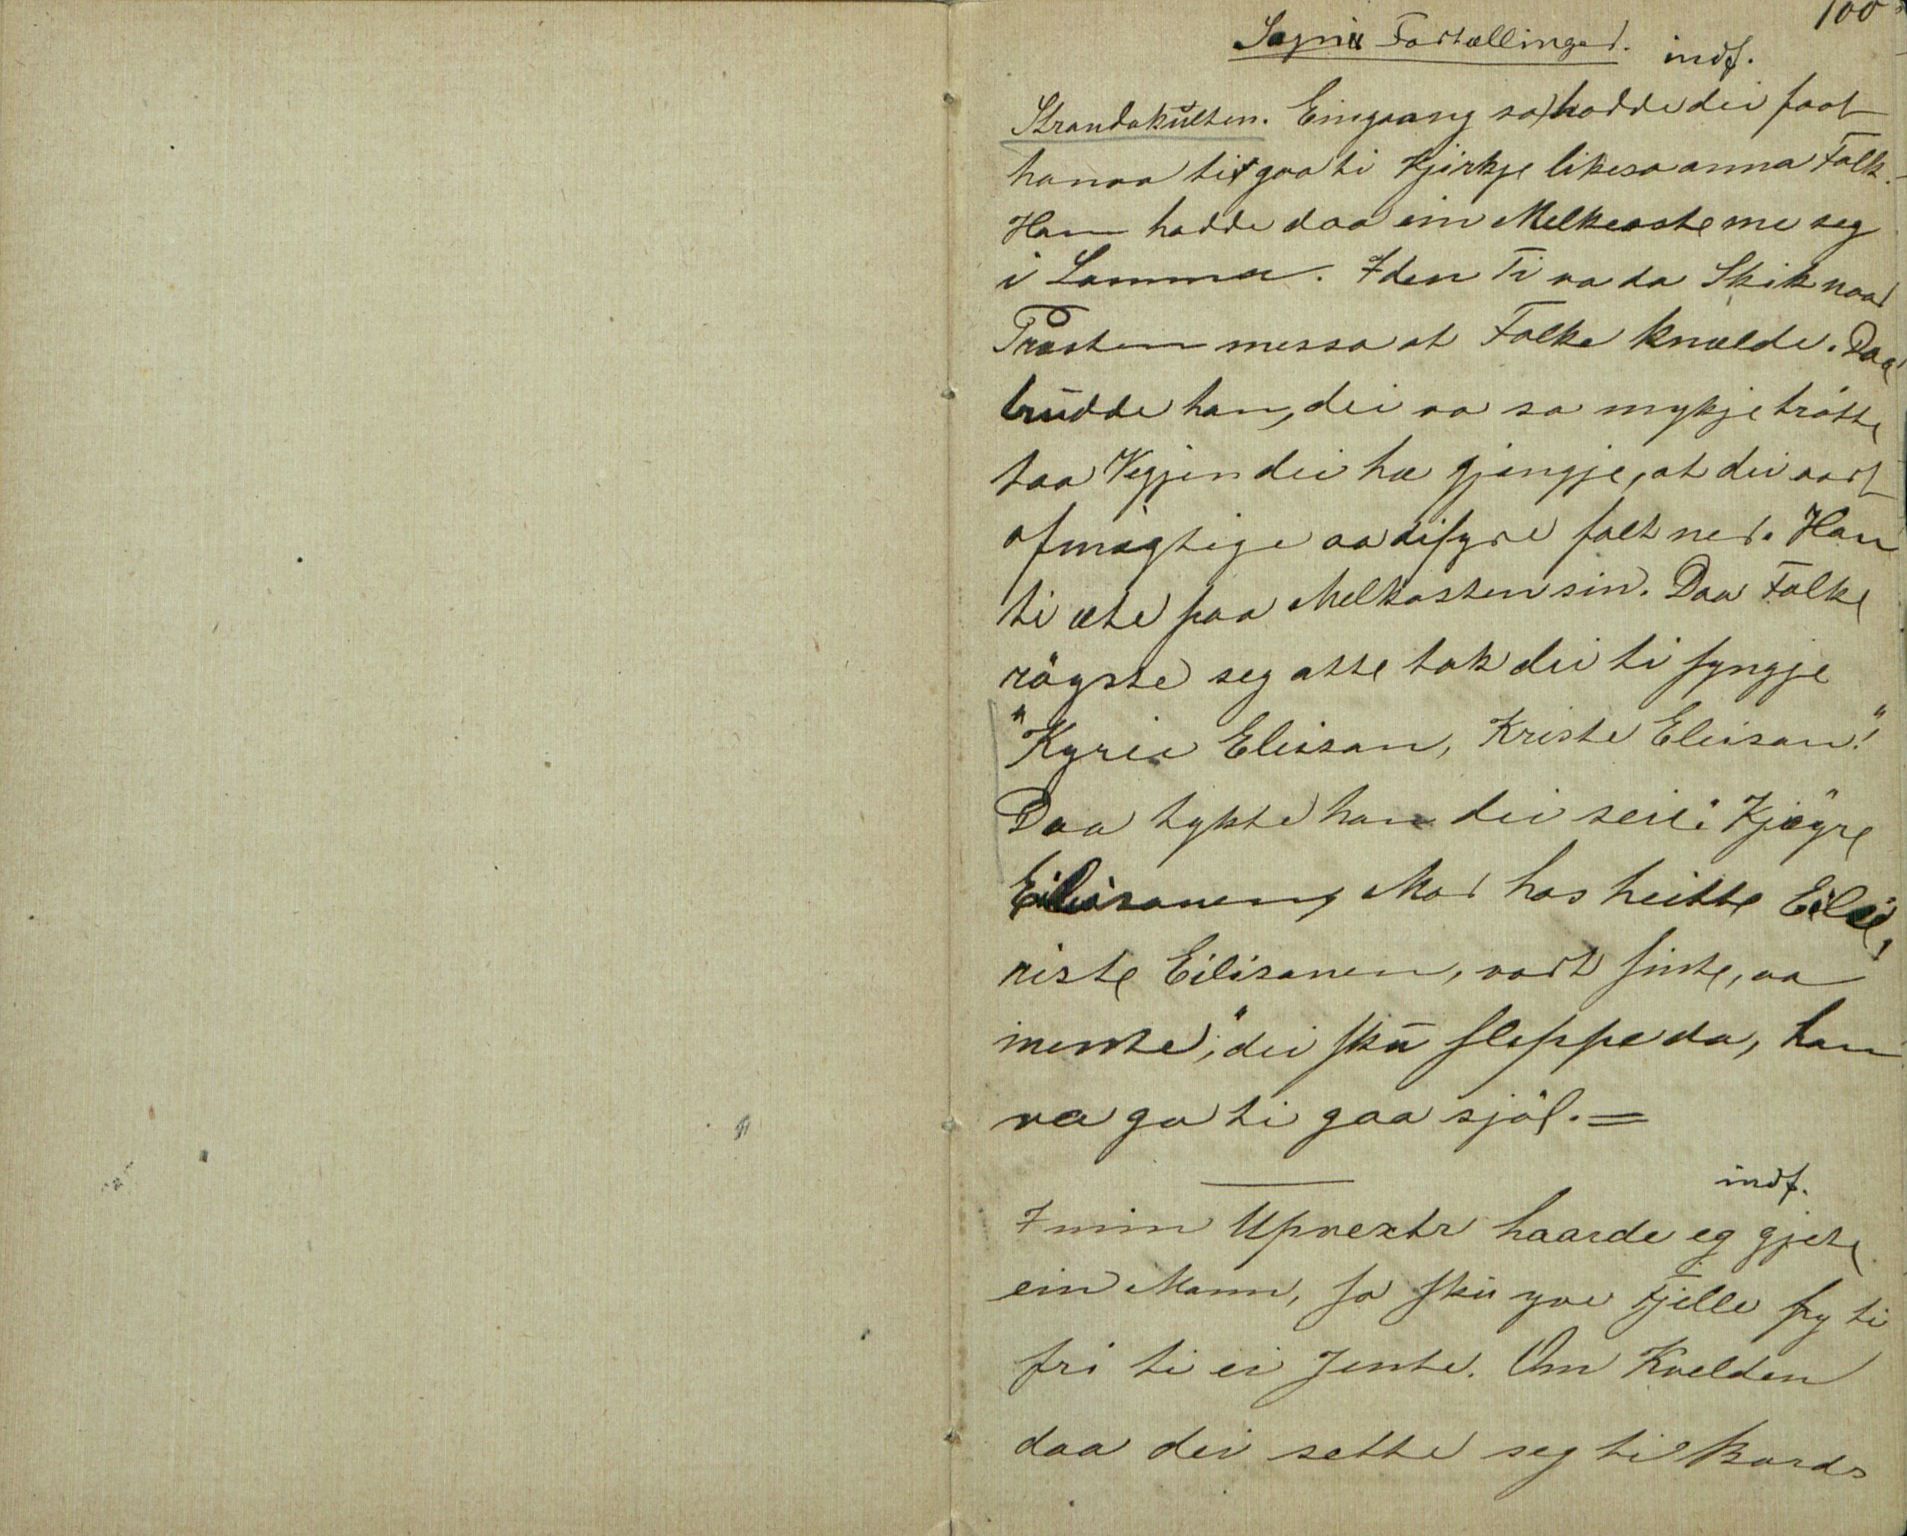 100
Sagn Fortællinger. indf.
Strandakulten. Eingaang so hadde dei faat
hanaa ti gaa ti Kjirkje likeso anna Folk.
Han hadde daa ein Melkeoste me seg
i Lomma. I den Ti va da Skik naar
Præsten messa at Folke knælde. Daa
trudde han, dei va so mykje trötte
taa Vegjen dei hæ gjengje, at dei vart
afmægtige aa difyre falt ned. Han
ti æte paa Melkosten sin. Daa Folke
rögste seg atte tok dei ti syngje
"Kyrie Eleisan, Kriste Eleisan!"
Daa tykte han dei seie: "Kjöyre
Eilisanen, Mor has heitte Eili,
riste Eilisanen, vart sinte, aa
mente, "dei sku sleppe da, han
va go ti gaa sjöl. =
indf.
I min Upvextr haarde eg gjete
ein Mann, so sku yve Fjelle fy ti
fri ti ei Jente. Om Kvelden
daa dei sette seg ti Bords